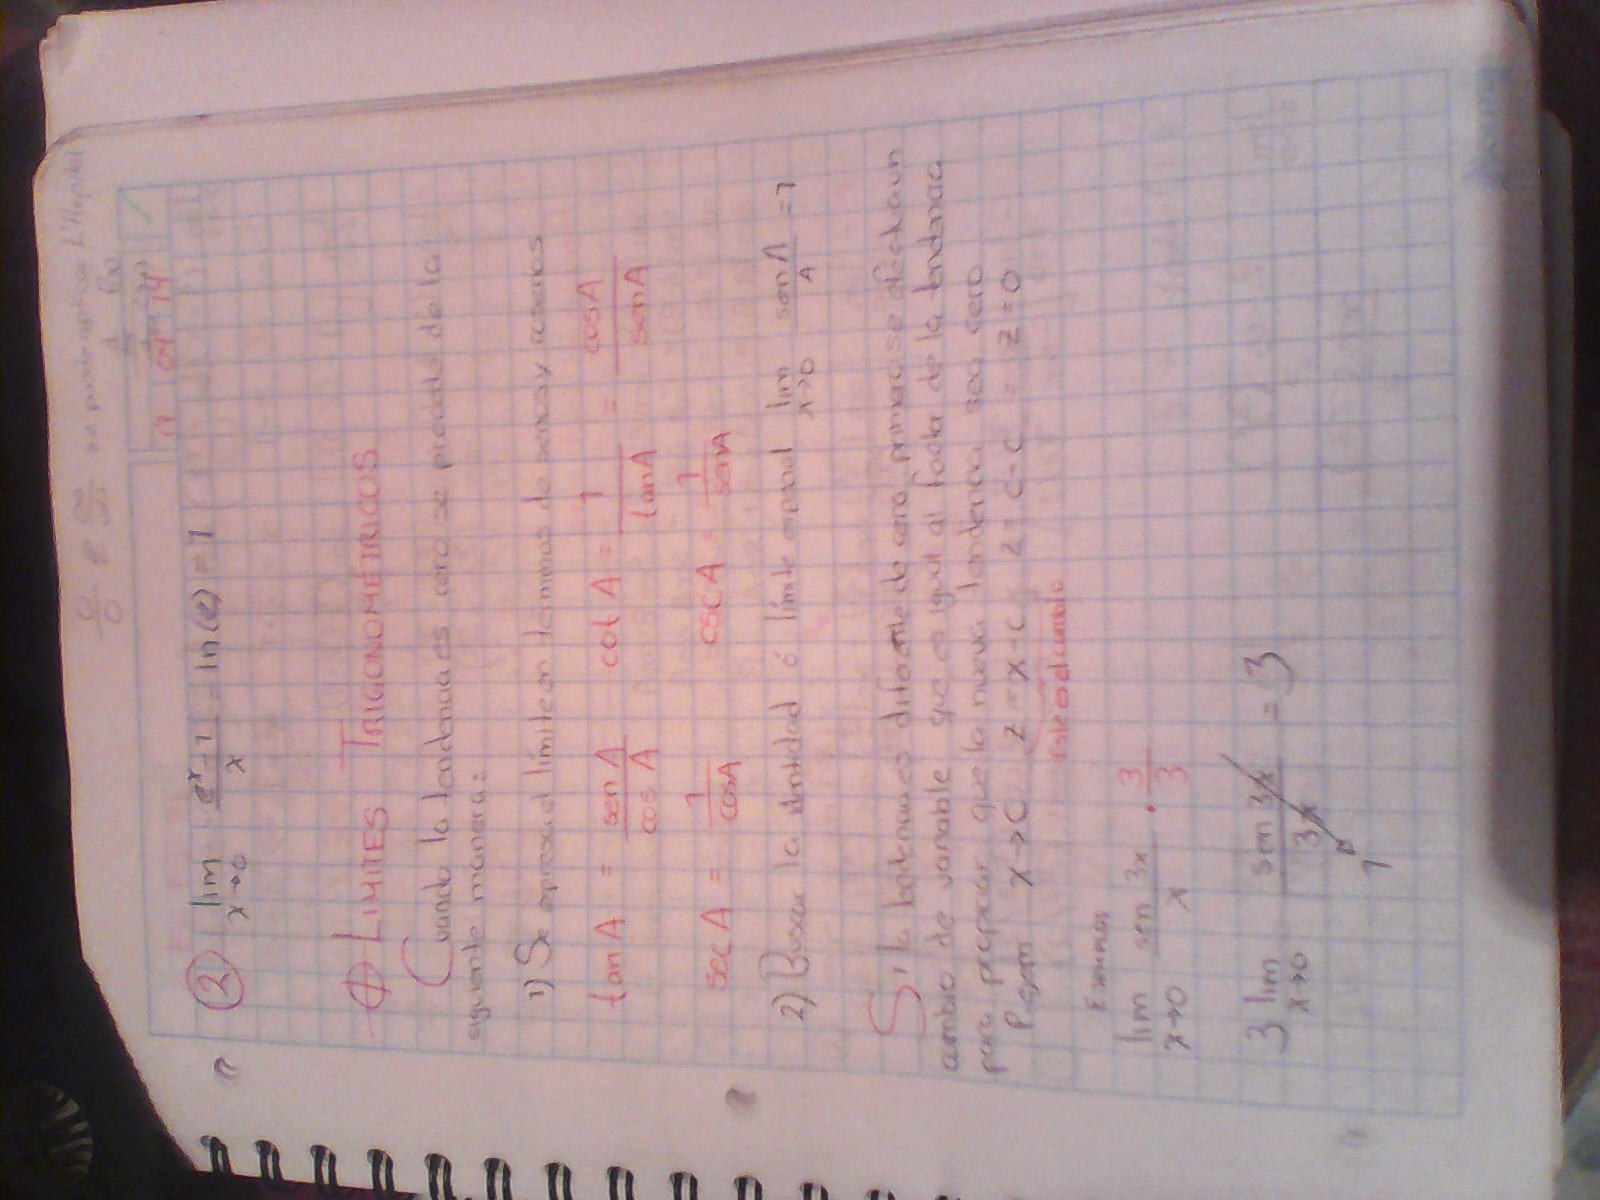 0/0 ∞/∞ se puede aplicar L'Hopital
17 04 14
2 lim x→0 (e^x - 1)/x = ln(e) = 1
LIMITES TRIGONOMÉTRICOS
Cuando la tendencia es cero se procede de la
siguiente manera:
1) Se expresa el límite en términos de senos y cosenos
tan A = sen A / cos A cot A = 1 / tan A = cos A / sen A
sec A = 1 / cos A csc A = 1 / sen A
2) Buscar la identidad ó límite especial lim x→0 sen A / A = 1
Si la tendencia es diferente de cero, primero se efectua un
cambio de variable que es igual al factor de la tendencia
para propiciar que la nueva tendencia sea cero
P. ejem x→c z = x-c z = c-c = z=0
Este es el cambio
Ejemplos
lim x→0 sen 3x / x · 3/3
3 lim x→0 sen 3x / 3x = 3
1
Norma